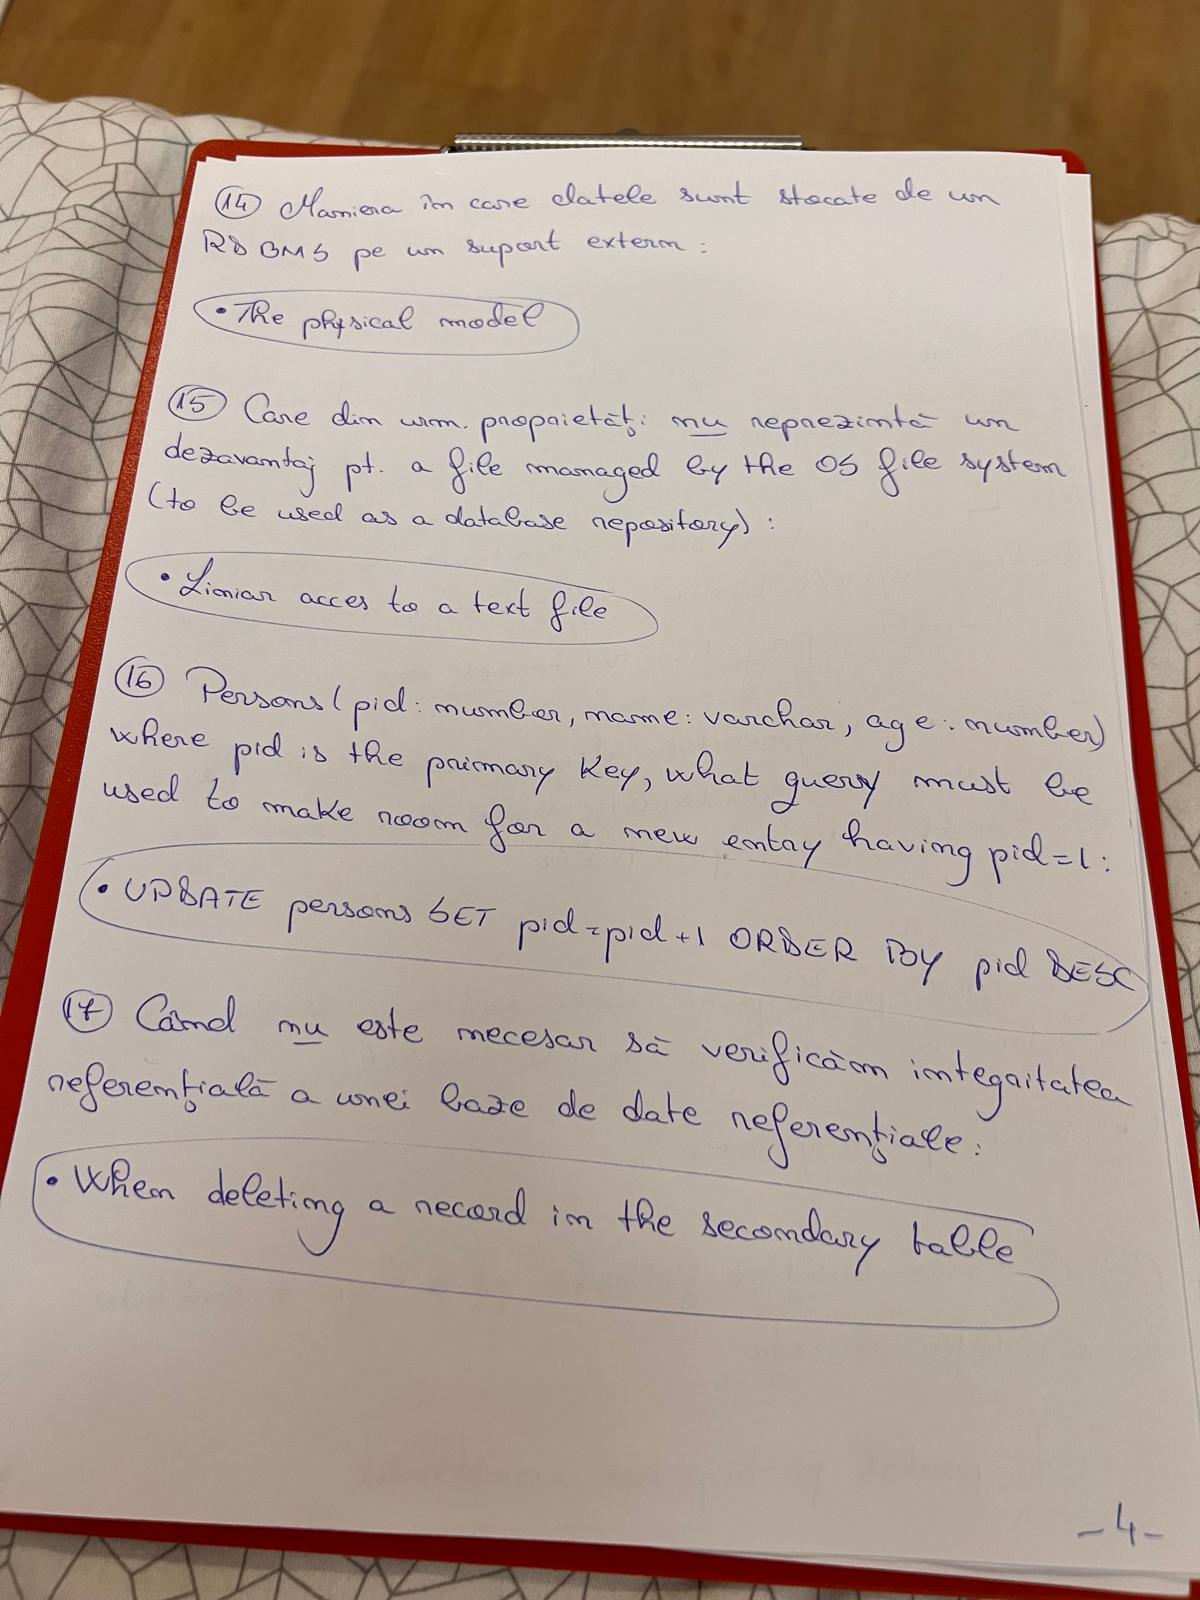 14 Maniera în care datele sunt stocate de un
RDBMS pe un suport extern:
• The physical model
15 Care din urm. proprietăți nu reprezintă un
dezavantaj pt. a file managed by the OS file system
(to be used as a database repository):
• Liniar acces to a text file
16 Persons(pid: number, name: varchar, age: number)
where pid is the primary key, what query must be
used to make room for a new entry having pid=1:
• UPDATE persons SET pid=pid+1 ORDER BY pid DESC
17 Când nu este necesar să verificăm integritatea
referențială a unei baze de date referențiale:
• When deleting a record in the secondary table
-4-